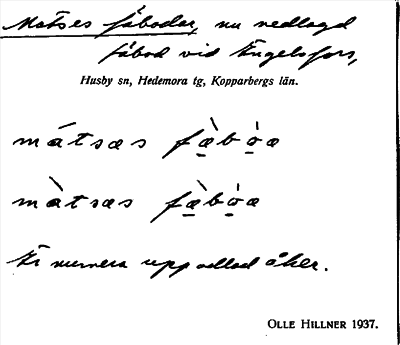 Matses fäbodar, nu nedlagd
fäbod vid Engelsfors,
Husby sn, Hedemora tg, Kopparbergs län.
mátsæs fæ̀bȯ̤æ
màtsæs fæ̀bó̤æ
Är numera uppodlad åker.
OLLE HILLNER 1937.